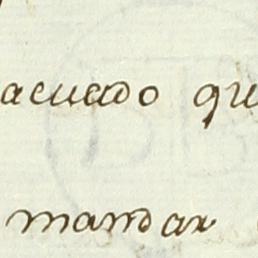 acuerdo qu
mandar